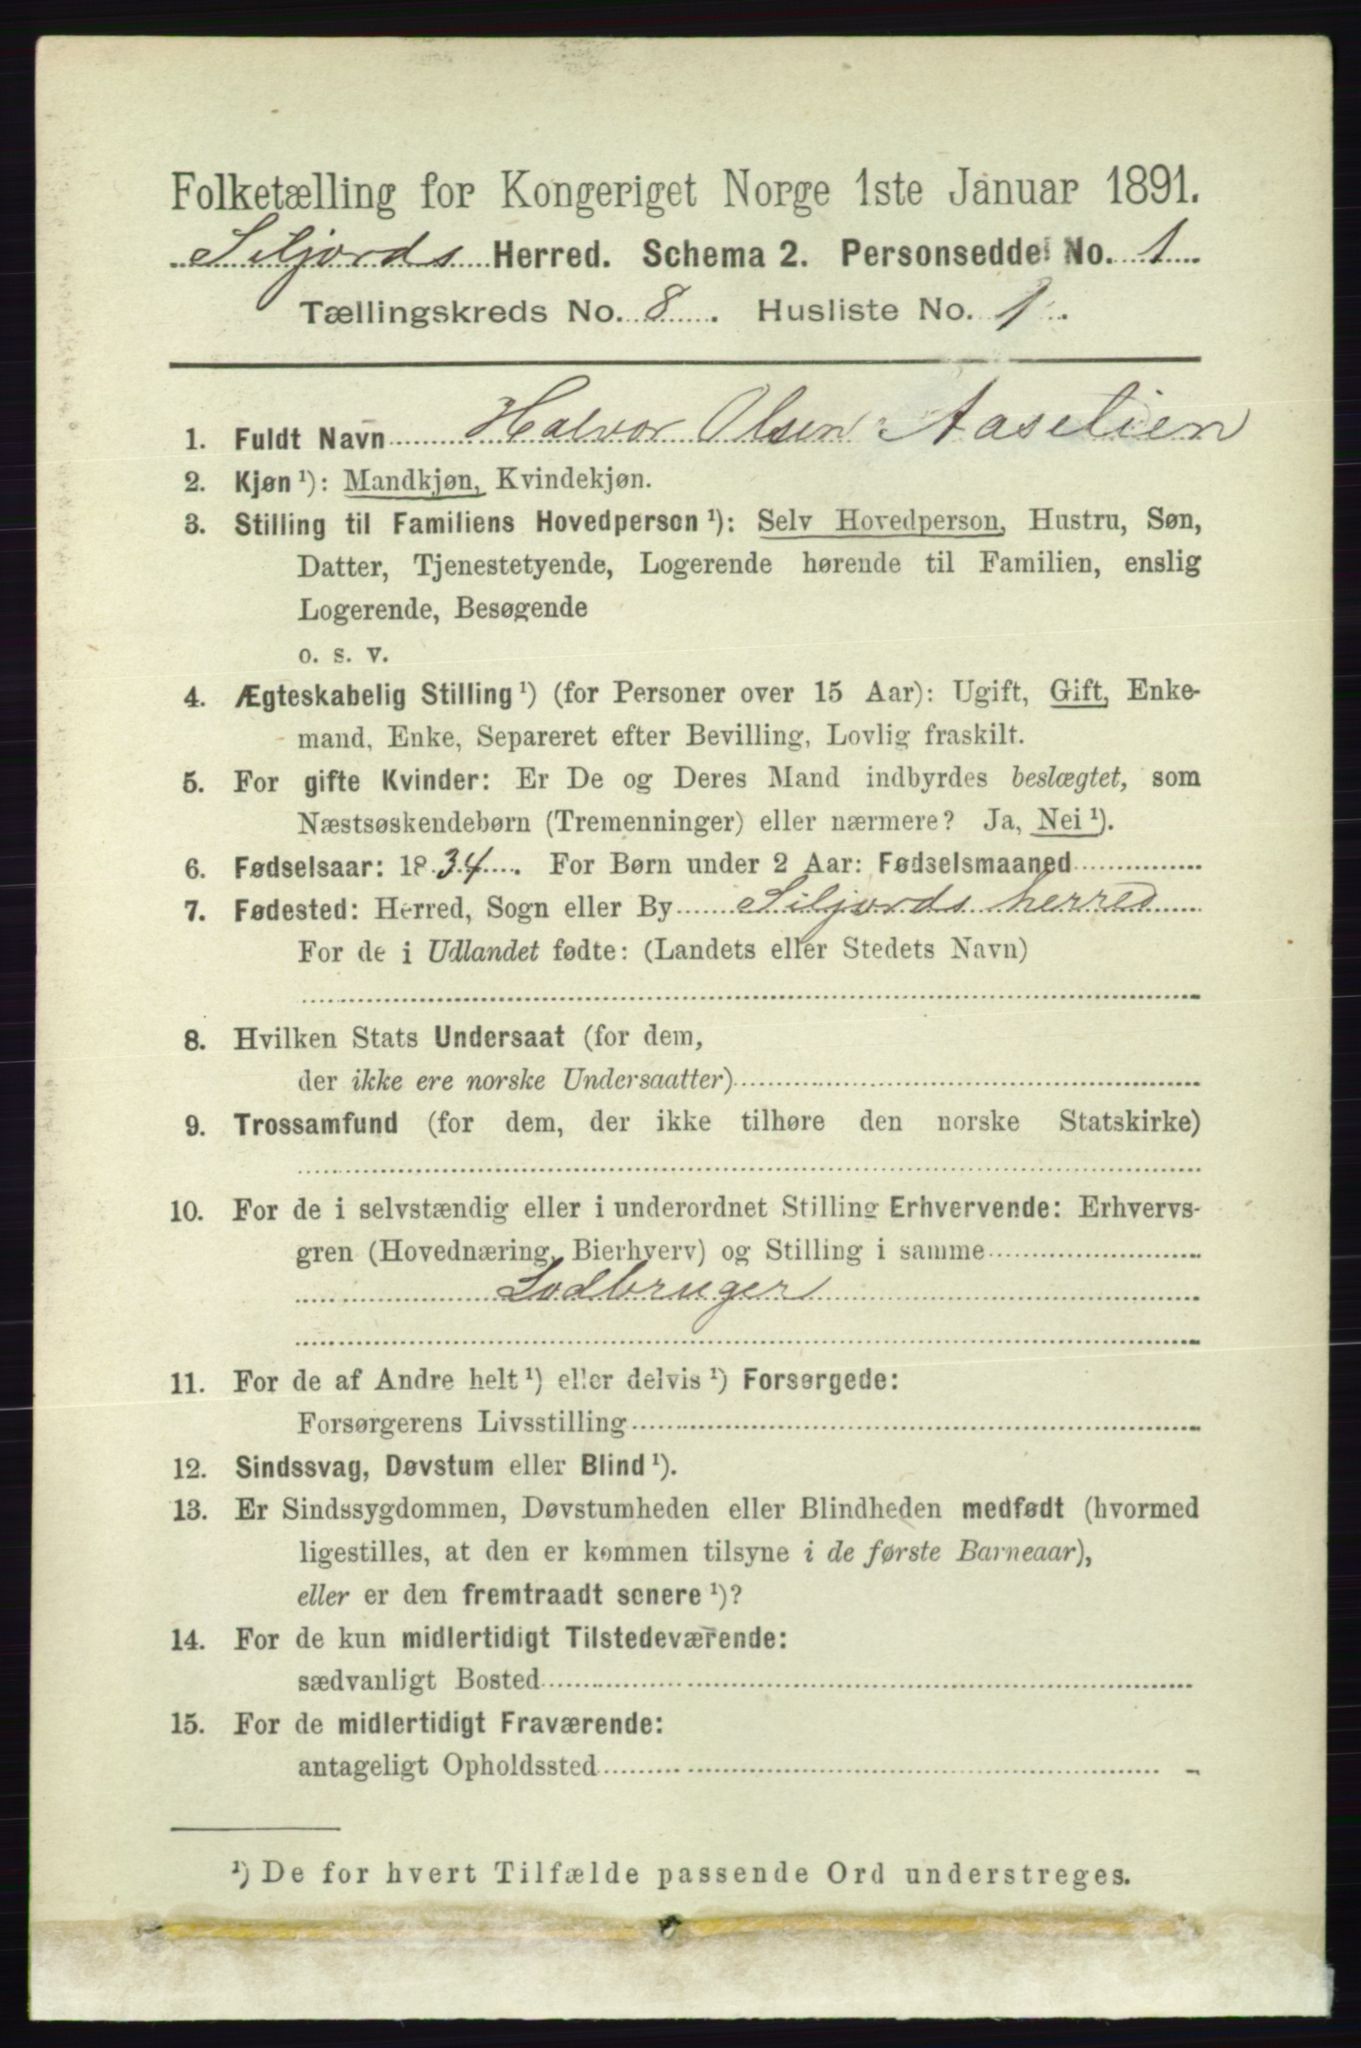 Folketælling for Kongeriget Norge 1ste Januar 1891.
Siljords Herred. Schema 2. Personseddel No. 1
Tællingskreds No. 8. Husliste No. 1.
1. Fuldt Navn Halvor Olsen Aaselien
2. Kjøn¹): Mandkjøn, Kvindekjøn.
3. Stilling til Familiens Hovedperson¹): Selv Hovedperson, Hustru, Søn,
Datter, Tjenestetyende, Logerende hørende til Familien, enslig
Logerende, Besøgende
o. s. v.
4. Ægteskabelig Stilling¹) (for Personer over 15 Aar): Ugift, Gift, Enke-
mand, Enke, Separeret efter Bevilling, Lovlig fraskilt.
5. For gifte Kvinder: Er De og Deres Mand indbyrdes beslægtet, som
Næstsøskendebørn (Tremenninger) eller nærmere? Ja, Nei¹).
6. Fødselsaar: 1834. For Børn under 2 Aar: Fødselsmaaned
7. Fødested: Herred, Sogn eller By Siljords herred
For de i Udlandet fødte: (Landets eller Stedets Navn)
8. Hvilken Stats Undersaat (for dem,
der ikke ere norske Undersaatter)
9. Trossamfund (for dem, der ikke tilhøre den norske Statskirke)
10. For de i selvstændig eller i underordnet Stilling Erhvervende: Erhvervs-
gren (Hovednæring, Bierhverv) og Stilling i samme
Lodbruger
11. For de af Andre helt¹) eller delvis¹) Forsørgede:
Forsørgerens Livsstilling
12. Sindssvag, Døvstum eller Blind¹).
13. Er Sindssygdommen, Døvstumheden eller Blindheden medfødt (hvormed
ligestilles, at den er kommen tilsyne i de første Barneaar),
eller er den fremtraadt senere¹)?
14. For de kun midlertidigt Tilstedeværende:
sædvanligt Bosted
15. For de midlertidigt Fraværende:
antageligt Opholdssted
¹) De for hvert Tilfælde passende Ord understreges.